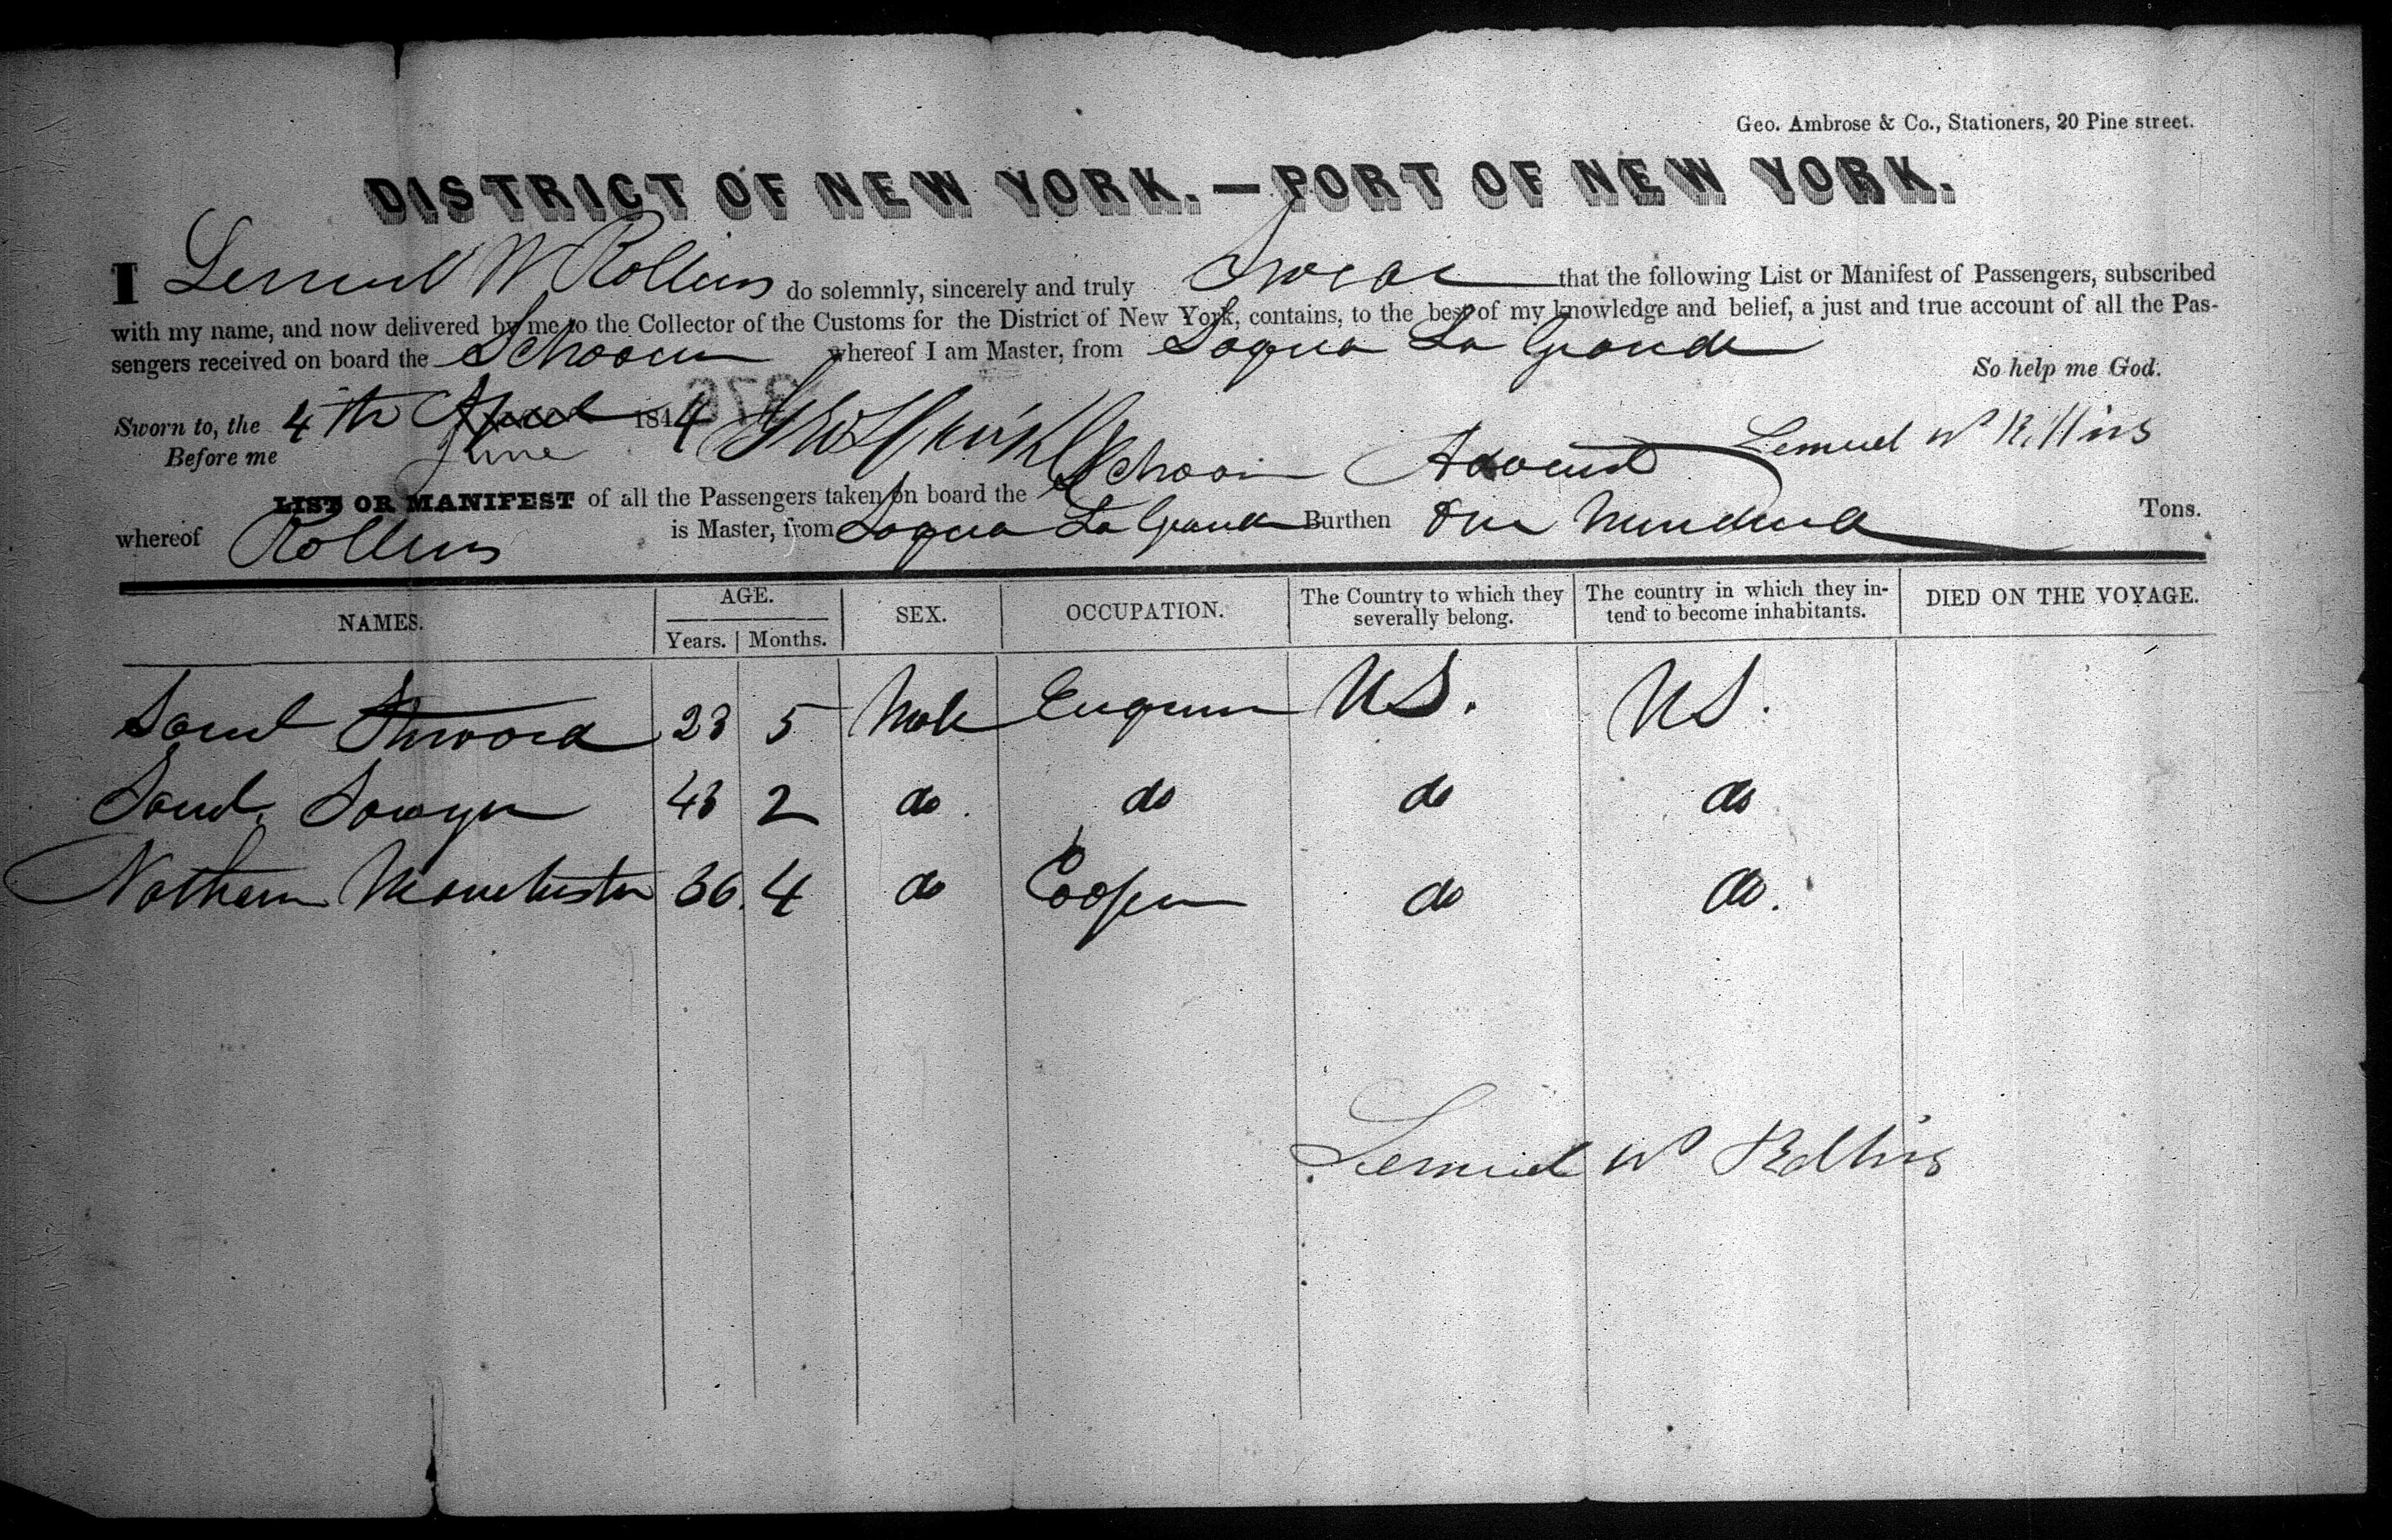 Geo. Ambrose & Co., Stationers, 20 Pine street.
DISTRICT OF NEW YORK.—PORT OF NEW YORK.
I Lemuel W Rollins do solemnly, sincerely and truly Swear that the following List or Manifest of Passengers, subscribed
with my name, and now delivered by me to the Collector of the Customs for the District of New York, contains, to the best of my knowledge and belief, a just and true account of all the Pas-
sengers received on board the Schooner whereof I am Master, from Sagua La Grande
So help me God.
Sworn to, the 4th April 1844
June
Before me
Lemuel W Rollins
LIST OR MANIFEST of all the Passengers taken on board the Schoon Advent
whereof Rollins is Master, from Sagua La Grande Burthen One Hundred Tons.
NAMES. AGE. SEX. OCCUPATION. The Country to which they severally belong. The country in which they in- tend to become inhabitants. DIED ON THE VOYAGE.
Years. Months.
Saml 23 5 Male Engineer US. US.
Saml. Sawyer 43 2 do do do do
Nathan Manchester 36. 4 do Cooper do do.
Lemuel W Rollins